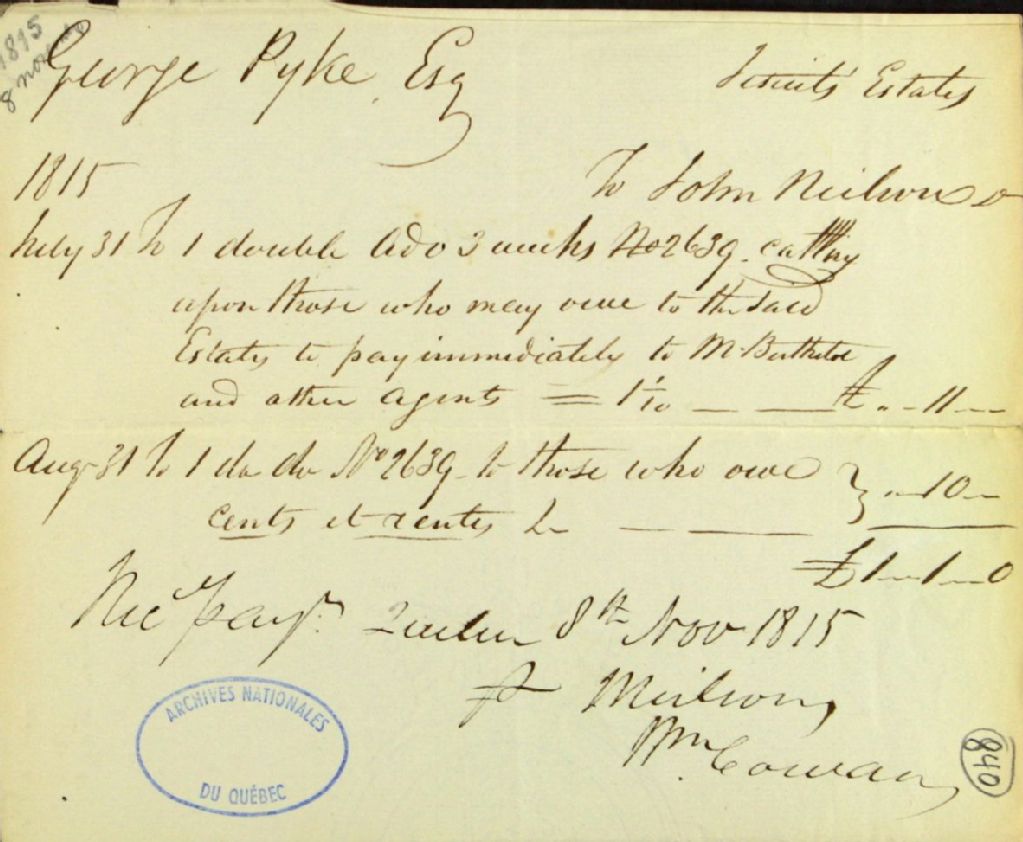 1815
8 nov
George Pyke, Esq
Jesuits' Estates
1815
To John Neilson Dr
July 31 To 1 double Adv 3 weeks No 2639. calling
upon those who may owe to the said
Estates to pay immediately to Mr Berthelot
and other agents = 1/10 — — £ „ - 11 —
Augt 31 To 1 do do No 2639 - to those who owe } „ — 10 —
cents et rentes &c — —
£1 — 1 — 0
Recd payt. Quebec 8th Nov 1815
Neilson,
Wm. Cowan
ARCHIVES NATIONALES
DU QUÉBEC
840